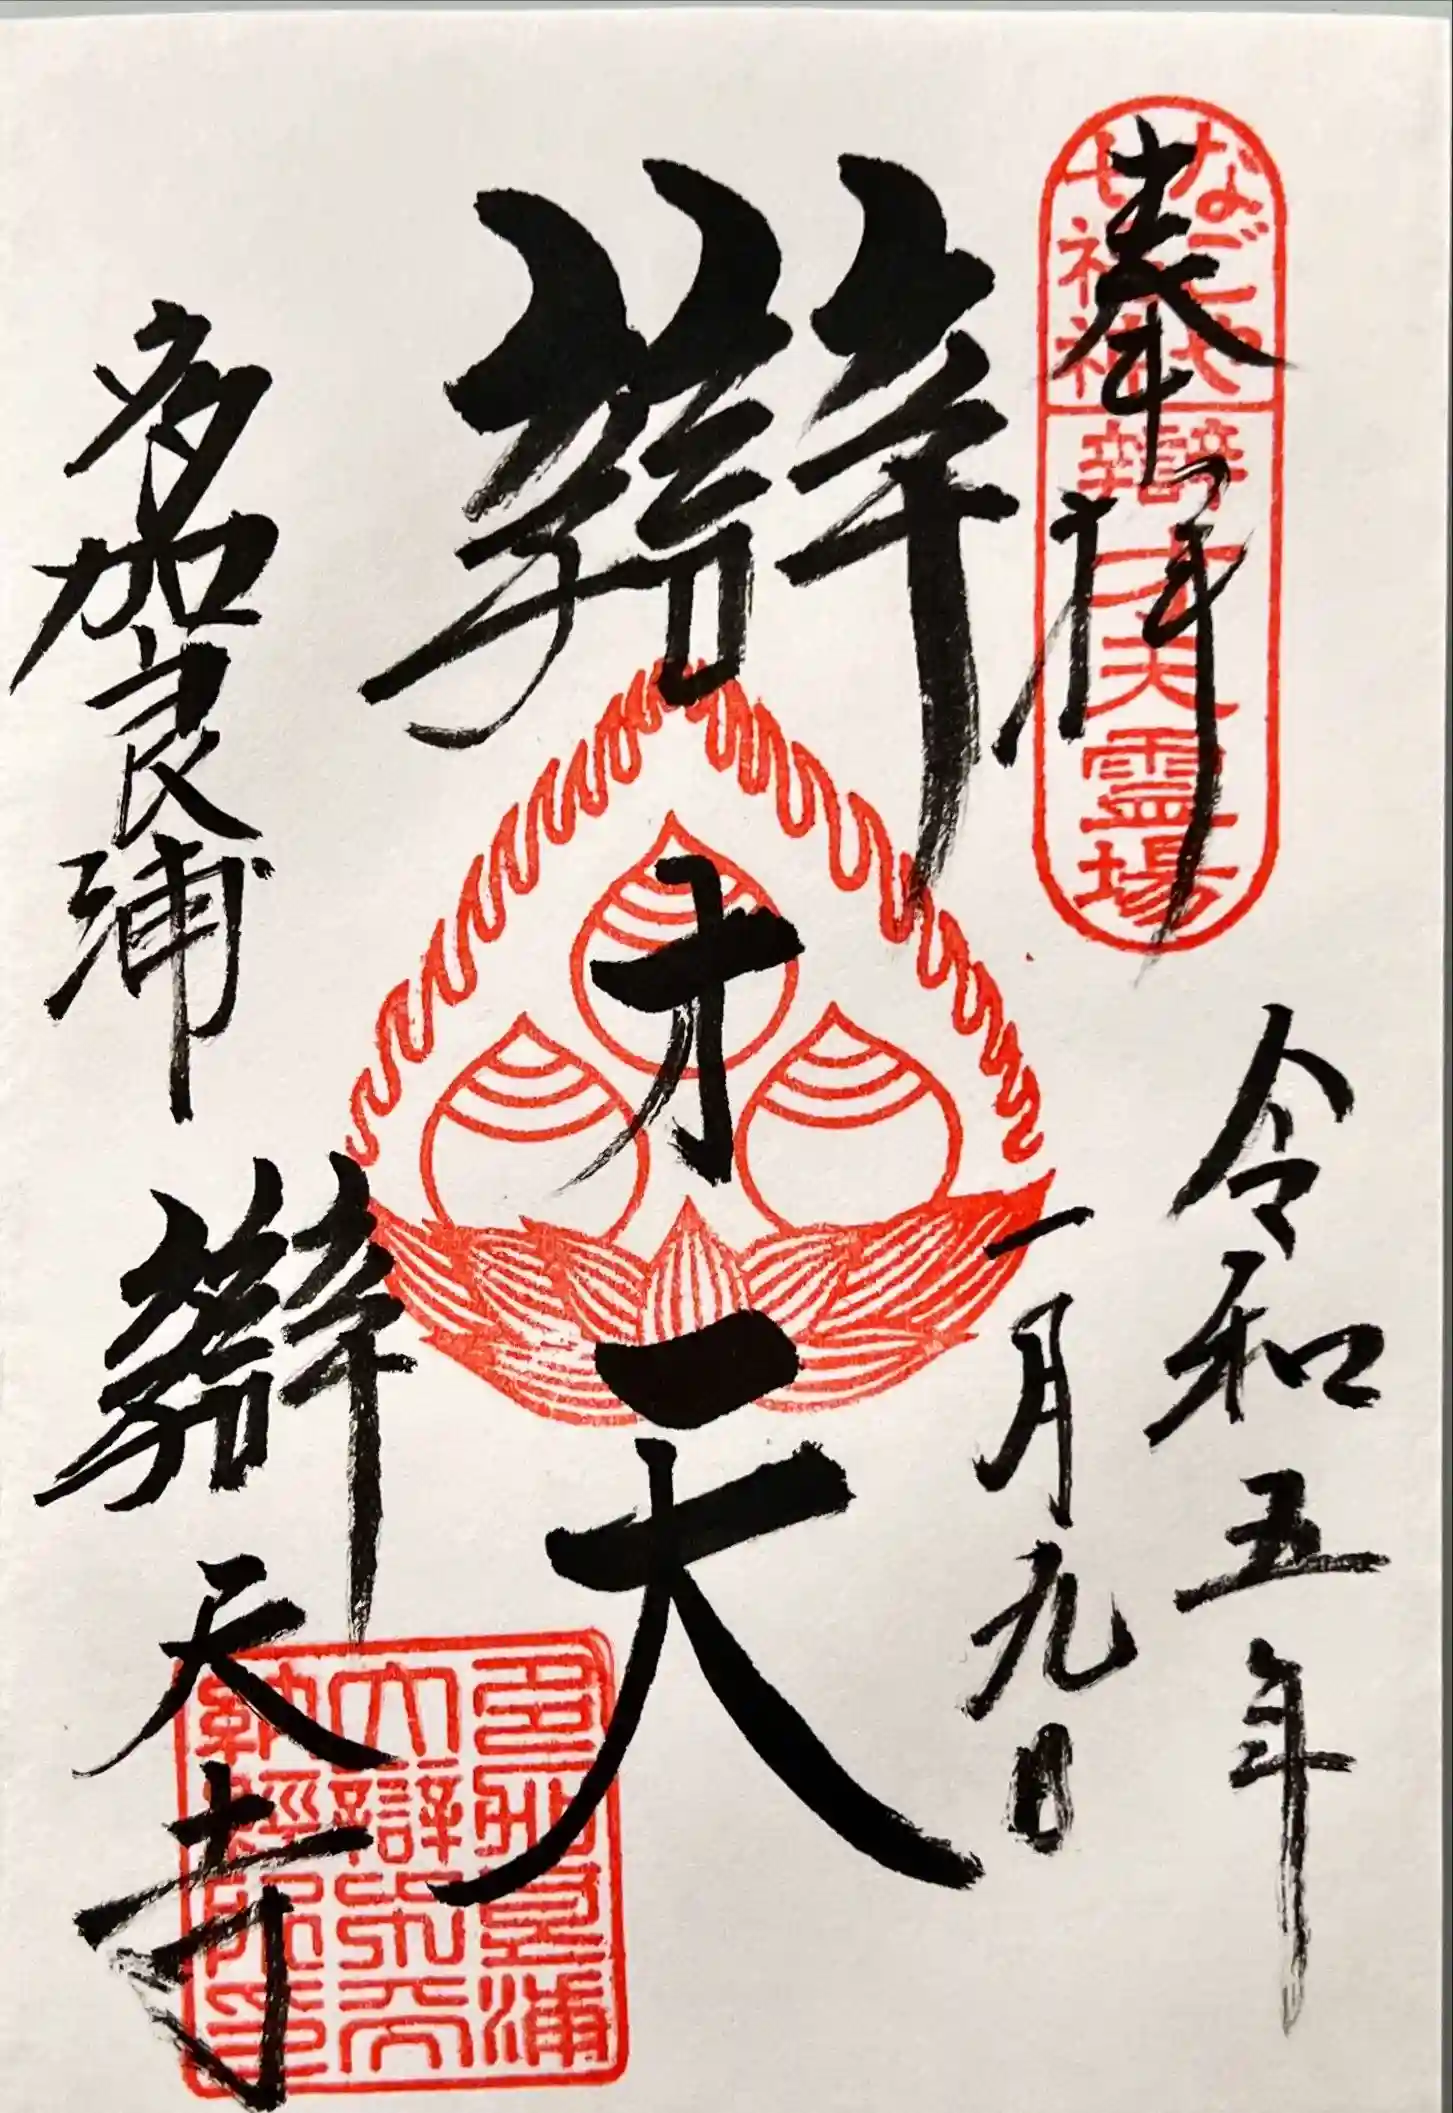 奉拝
なごや
七福神
辯才天霊場
令和五年
一月九日
辯才天
多加良浦
辯天寺
多加良浦
大辯栄天